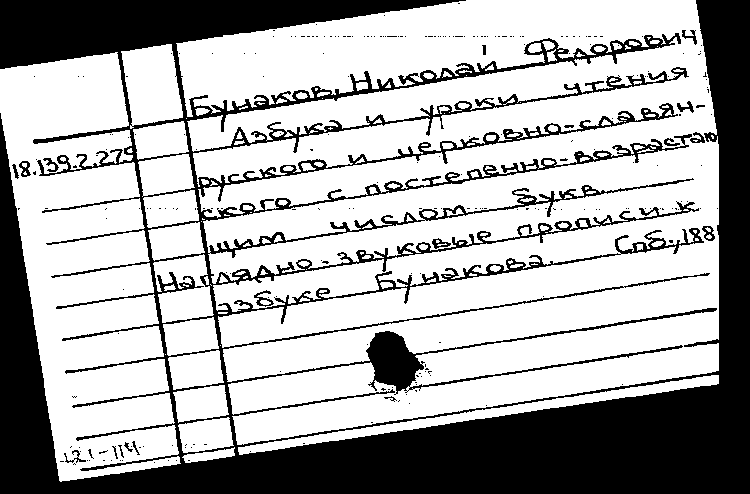 Бунаков, Николай Федорович
Азбука и уроки чтения
18.139.2.275
русского и церковно-славян-
ского с постепенно-возрастаю
щим числом букв.
Наглядно-звуковые прописи к
азбуке Бунакова. Спб., 188
121-114